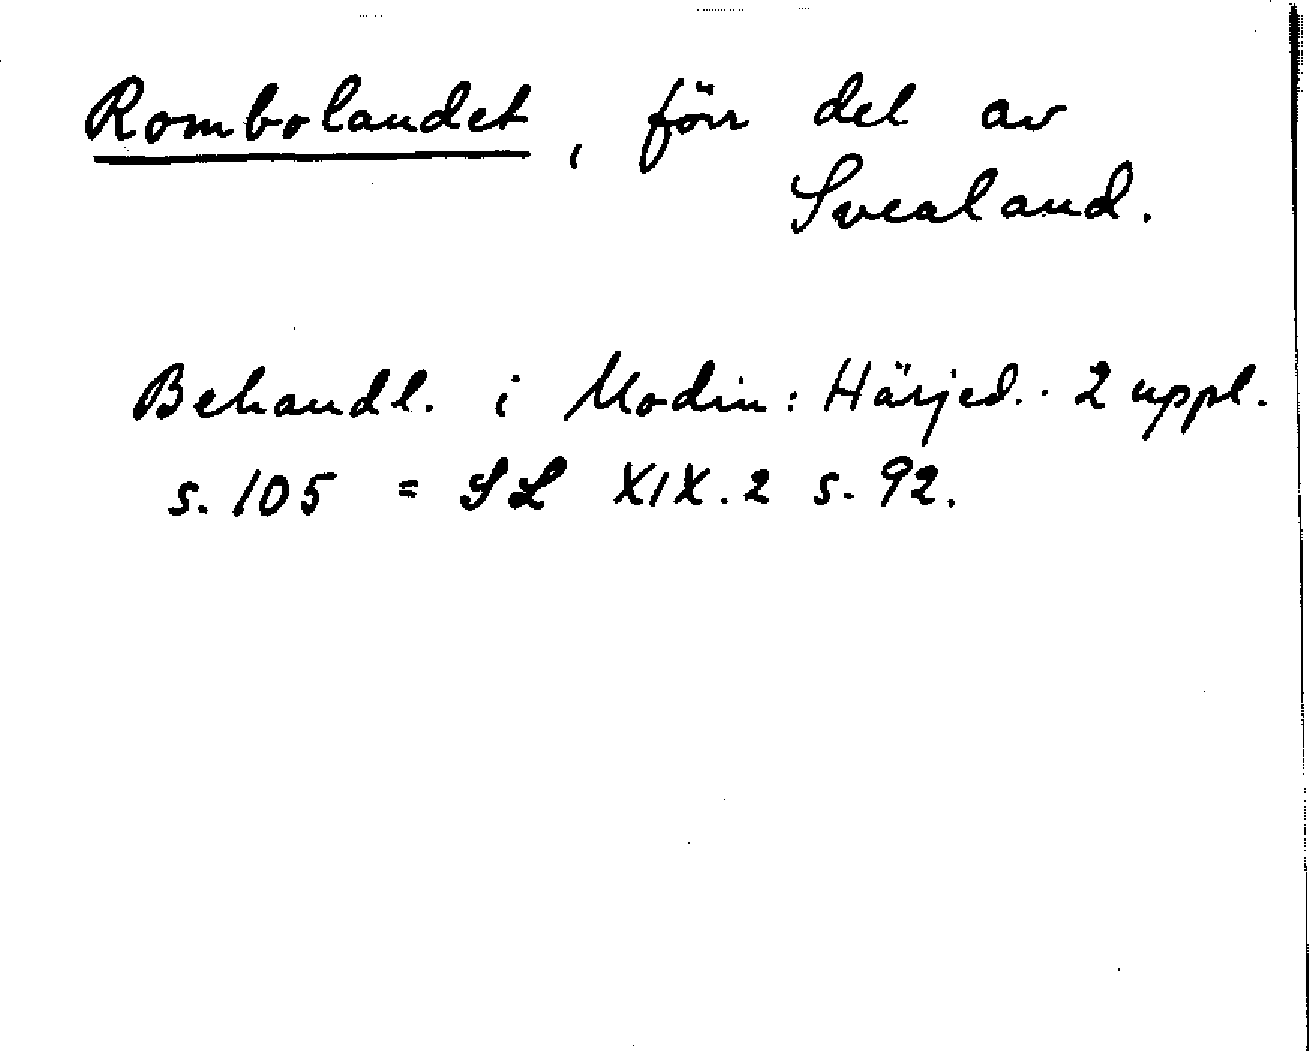 Rombolandet, förr del av
Svealand.
Behandl. i Modin: Härjed. 2 uppl.
s. 105 = SL XIX.2 s. 92.